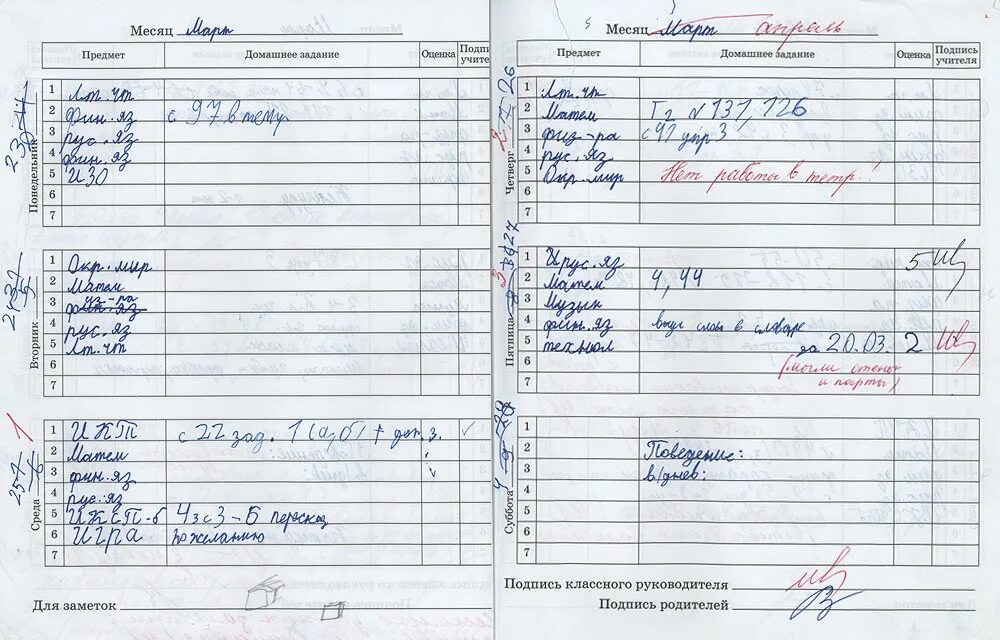 Месяц Март
Предмет Домашнее задание Оценка Подпись учителя
Понедельник
1 Лт. чт
2 фин. яз с 97 в тему
3 рус. яз
4 фин. яз
5 ИЗО
6
7
Вторник
1 Окр. мир
2 Матем
3 уз-ра
фин. яз
4 рус. яз
5 Лт. чт
6
7
Среда
1 ИКТ с 22 зад. 1 (а, б) + доп. з.
2 Матем
3 фин. яз
4 рус. яз
5 ИКсП-б 4з с 3-5 переска
6 Игра по желанию
7
Для заметок
Месяц Март апрель
Предмет Домашнее задание Оценка Подпись учителя
Четверг 26
1 Лт. чт
2 Матем Гг № 131, 126
3 физ-ра с 91 упр 3
4 рус. яз
5 Окр. мир Нет работы в тетр!
6
7
Пятница 27
1 Ирус. яз 5
2 Матем 4, 44
3 Музык
4 фин. яз выуч слова в словаре
5 технол за 20.03. 2
6 (могли стены
7 и парты)
Суббота
1
2 Поведение:
3 в/днев:
4
5
6
7
Подпись классного руководителя
Подпись родителей